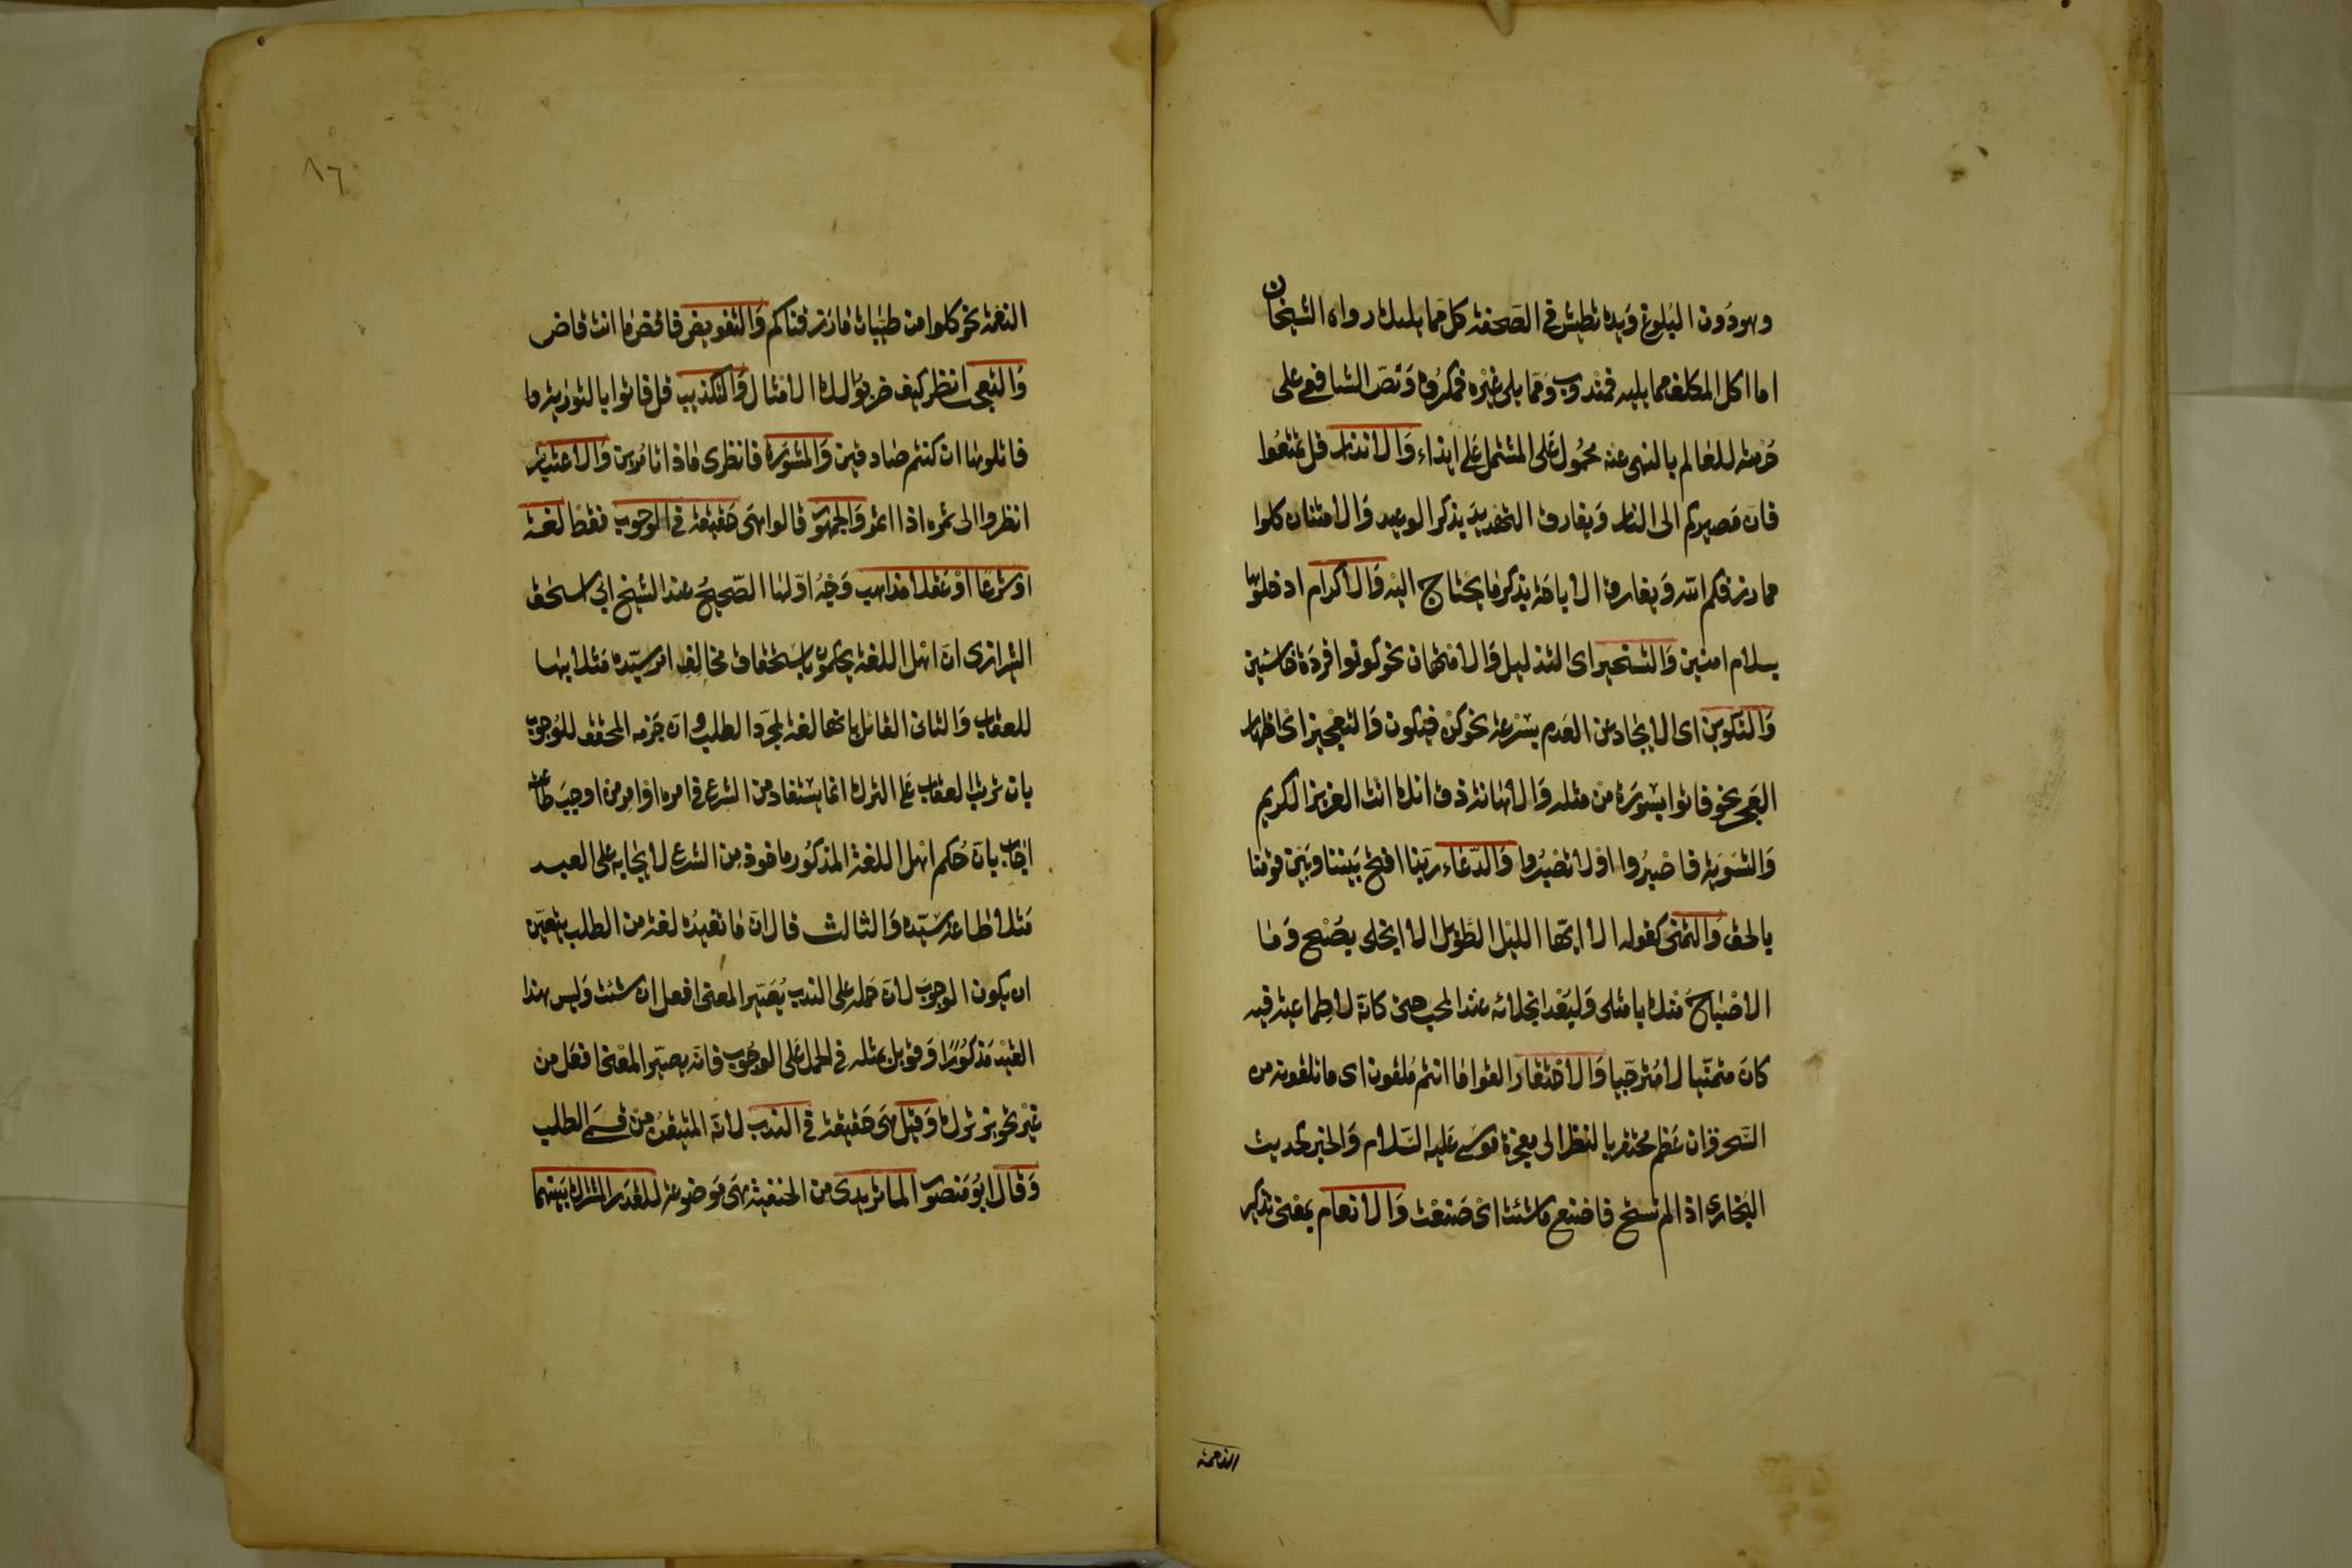 وهو دون البلوغ ويده تطيش في الصحفة كل مما يليك رواه الشيخان
اما اكل المكلف مما يليه فمندوب ومما يلى غيره فمكروه ونص الشافعي على
حرمته للعالم بالنهى عنه محمول على المشتمل على ايذاء والانذار قل تمتعوا
فان مصيركم الى النار ويفارق التهديد بذكر الوعيد والامتنان كلوا
مما رزقكم الله ويفارق الاباحة بذكر ما يحتاج اليه والاكرام ادخلوها
بسلام امنين والتسخير اى التذليل والامتهان نحو كونوا قردة خاسئين
والتكوين اى الايجاد عن العدم بسرعة نحو كن فيكون والتعجيز اى اظهار
العجز نحو فاتوا بسورة من مثله والاهانة ذق انك انت العزيز الكريم
والتسوية فاصبروا او لا تصبروا والدعاء ربنا افتح بيننا وبين قومنا
بالحق والتمنى كقوله الا ايها الليل الطويل الا انجلى بصبح وما
الاصباح منك بامثلى ولبعد انجلائه عند المحب حتى كانه لا طماعية فيه
كان متمنيا لا مترجيا والاحتقار القوا ما انتم ملقون اى ما تلقونه من
السحر وان عظم محتقر بالنظر الى معجزة موسى عليه السلام والخبر كحديث
البخارى اذا لم تستح فاصنع ما شئت اى صنعت والانعام بمعنى تذكير
النعمة
٨٦
النعمة نحو كلوا من طيبات ما رزقناكم والتفويض فاقض ما انت قاض
والتعجب انظر كيف ضربوا لك الامثال والتكذيب قل فاتوا بالتورية
فاتلوها ان كنتم صادقين والمشورة فانظرى ماذا تامرين والاعتبار
انظروا الى ثمره اذا اثمر والجمهور قالوا هى حقيقة في الوجوب فقط لغة
او شرعا او عقلا مذاهب وجه اولها الصحيح عند الشيخ ابى اسحق
الشرازى ان اهل اللغة يحكمون باستحقاق مخالف امر سيده مثلا بها
للعقاب والثانى القائل بانها لغة لمجرد الطلب وان جزمه المحقق للوجوب
بان ترتب العقاب على الترك انما يستفاد من الشرع في امره او امر من اوجب طاعته
اجاب بان حكم اهل اللغة المذكور ماخوذ من الشرع لايجابه على العبد
مثلا طاعة سيده والثالث قال ان ما تفيده لغة من الطلب يتعين
ان يكون الوجوب لان حمله على الندب يصير المعنى افعل ان شئت وليس هذا
القيد مذكورا وقوبل بمثله في الحمل على الوجوب فانه يصير المعنى افعل من
غير تجويز ترك وقيل هى حقيقة في الندب لانه المتيقن من قسمى الطلب
وقال ابو منصور الماتريدى من الحنفية هى موضوعة للقدر المشترك بينهما